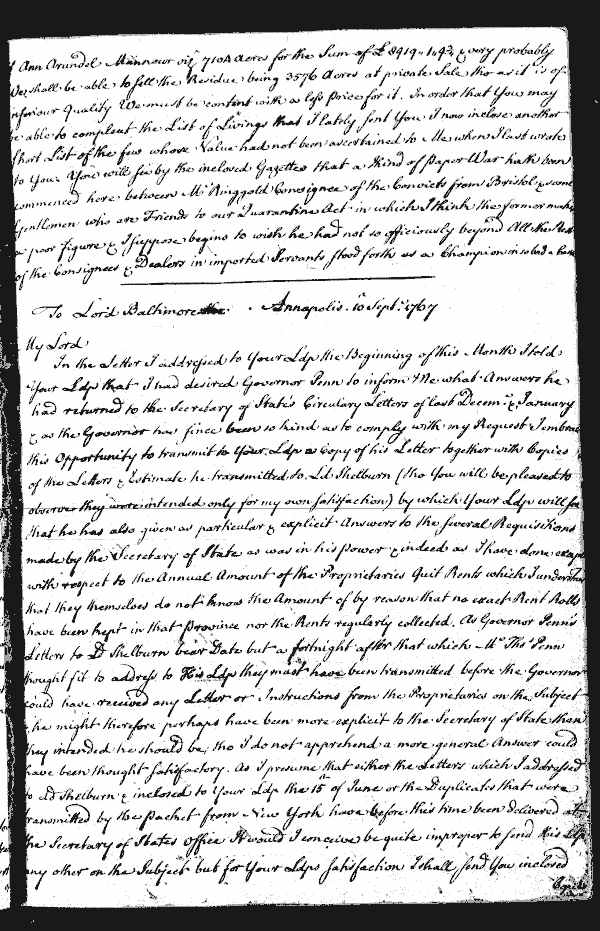 Ann Arundel Mannour viz. 7104 Acres for the Sum of £8919..1..4¾ & very probably
We shall be able to sell the Residue being 3576 Acres at private Sale tho as it is of
inferiour Quality We must be content with a less Price for it. In order that You may
be able to compleat the List of Livings that I lately sent You I now inclose another
short List of the few whose Value had not been ascertained to Me when I last wrote
to You. You will see by the inclosed Gazettes that a Kind of Paper War hath been
commenced here between Mr. Ringgold Consignee of the Convicts from Bristol & some
Gentlemen who are Friends to our Quarantine Act in which I think the former makes
a poor figure & I suppose begins to wish he had not so officiously beyond All the Rest
of the Consignees & Dealers in imported Servants stood forth as a Champion in so bad a
To Lord Baltimore Annapolis. 10 Sept. 1767
My Lord
In the Letter I addressed to Your Ldp the Beginning of this Month I told
Your Ldp that I had desired Governor Penn to inform Me what Answers he
had returned to the Secretary of State's Circulary Letters of last Decemr. & January
& as the Governor has since been so kind as to comply with my Request I embrace
this Opportunity to transmit to Your Ldp a Copy of his Letter together with Copies
of the Letters & Estimate he transmitted to Ld Shelburn (tho You will be pleased to
observe they were intended only for my own Satisfaction) by which Your Ldp will see
that he has also given as particular & explicit Answers to the several Requisitions
made by the Secretary of State as was in his Power & indeed as I have done except
with respect to the Annual Amount of the Proprietaries Quit Rents which I understand
that they themselves do not know the Amount of by reason that no exact Rent Rolls
have been kept in that Province nor the Rents regularly collected. As Governor Penn's
Letters to Ld Shelburn bear Date but a fortnight after that which Mr. Thos. Penn
thought fit to address to His Ldp they must have been transmitted before the Governor
could have received any Letter or Instructions from the Proprietaries on the Subject
& he might therefore perhaps have been more explicit to the Secretary of State than
they intended he should be, tho I do not apprehend a more general Answer could
have been thought Satisfactory. As I presume that either the Letters which I addressed
to Ld Shelburn & inclosed to Your Ldp the 15th of June or the Duplicates that were
transmitted by the Packet from New York have before this time been delivered at
the Secretary of States Office It would I conceive be quite improper to send His Ldp
any other on the Subject but for Your Ldps Satisfaction I shall send You inclosed